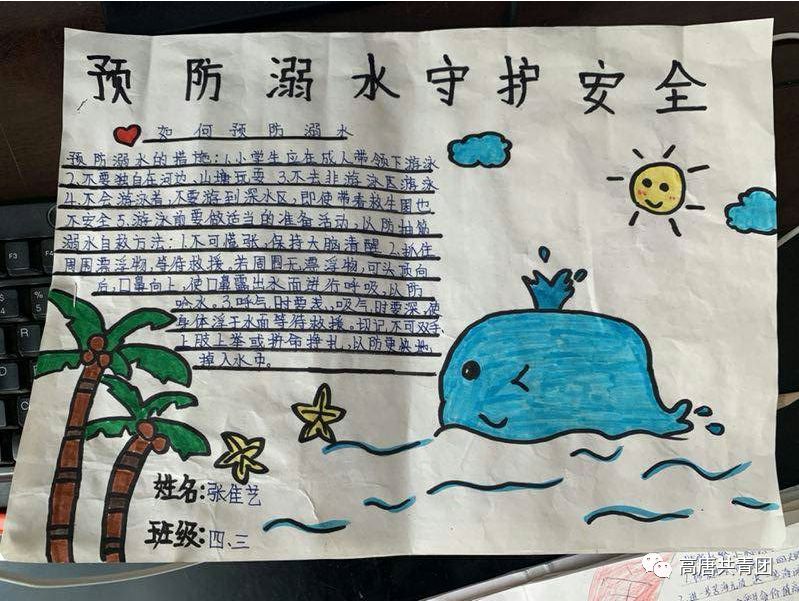 预防溺水守护安全
如何预防溺水
预防溺水的措施:1.小学生应在成人带领下游泳
2.不要独自在河边、山塘玩耍 3.不去非游泳区游泳
4.不会游泳者,不要游到深水区,即使带着救生圈也
不安全5.游泳前要做适当的准备活动,以防抽筋
溺水自救方法:1.不可慌张,保持大脑清醒 2.抓住
周围漂浮物,等待救援,若周围无漂浮物,可头顶向
后,口鼻向上,使口鼻露出水面进行呼吸,以防
呛水。3.呼气时要浅,吸气时要深,使
身体浮于水面等待救援。切记不可双手
上肢上举或拼命挣扎,以防更快地
掉入水中。
姓名:张佳艺
班级:四、三
高唐共青团
F3
F4
$
4
%
5